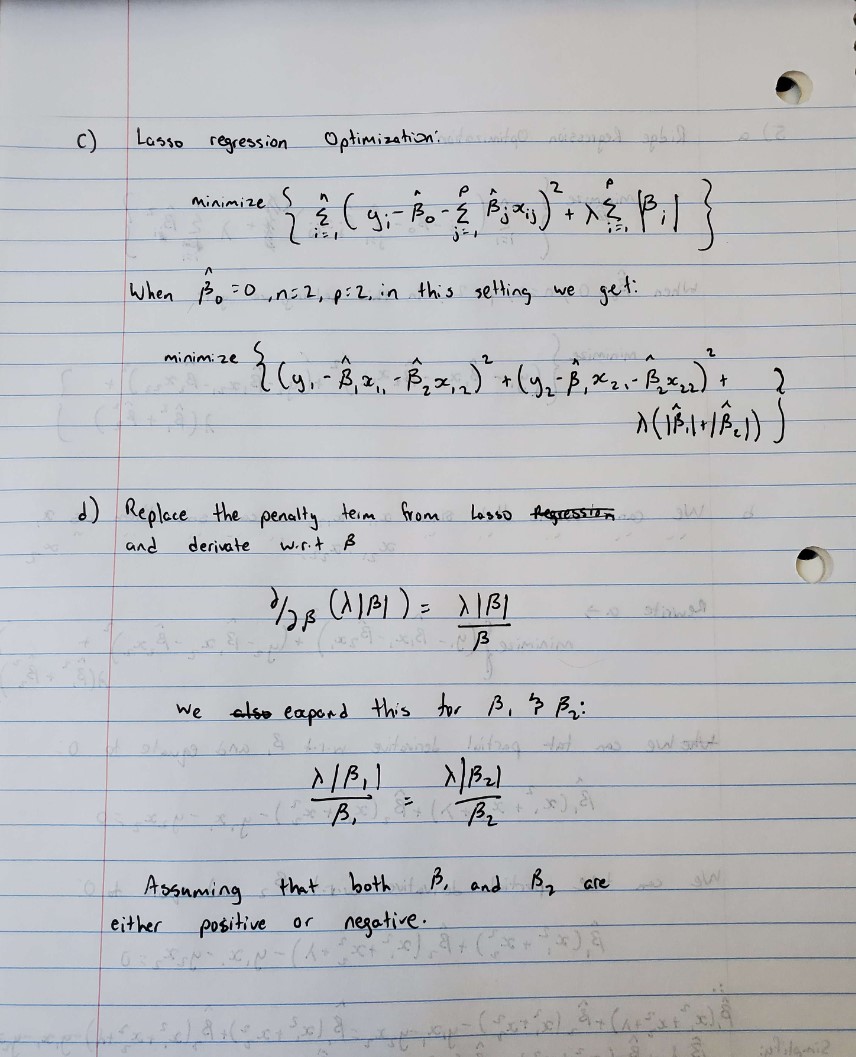 c) Lasso regression Optimization:
minimize { Σ_{i=1}^{n} ( y_i - β̂_0 - Σ_{j=1}^{p} β̂_j x_ij )² + λ Σ_{i=1}^{p} |β_i| }
When β̂_0 = 0, n=2, p=2, in this setting we get:
minimize { (y_1 - β̂_1 x_11 - β̂_2 x_12)² + (y_2 - β̂_1 x_21 - β̂_2 x_22)² +
λ(|β̂_1| + |β̂_2|) }
d) Replace the penalty term from Lasso ~~Regression~~
and derivate w.r.t β
∂/∂β (λ|β|) = λ|β| / β
We ~~also~~ expand this for β_1 & β_2:
λ|β_1| / β_1 = λ|β_2| / β_2
Assuming that both β_1 and β_2 are
either positive or negative.